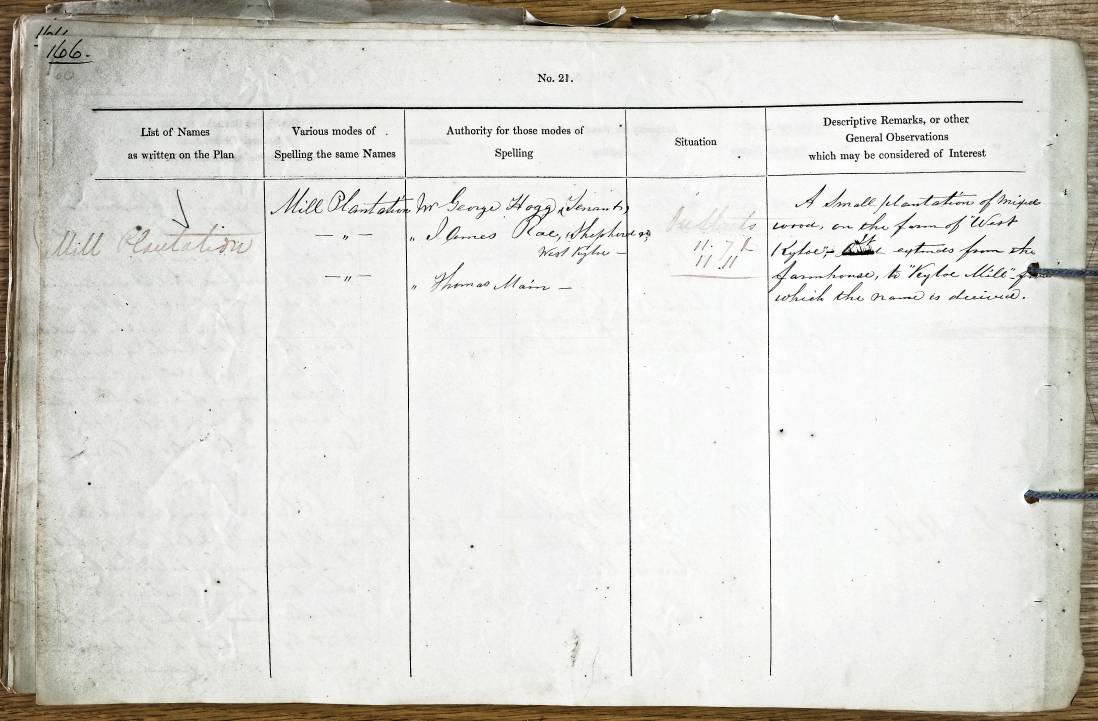 166.
No. 21.
List of Names
as written on the Plan
Various modes of
Spelling the same Names
Authority for those modes of
Spelling
Situation
Descriptive Remarks, or other
General Observations
which may be considered of Interest
Mill Plantation
Mill Plantation
— „ —
— „ —
Mr George Hogg (Tenant)
„ James Rae, (Shepherd)
West Kyloe —
„ Thomas Main —
11 . 7
11 . 11
A Small plantation of mixed
wood, on the farm of "West
Kyloe", It extends from the
farmhouse, to "Kyloe Mill"
which the name is derived.